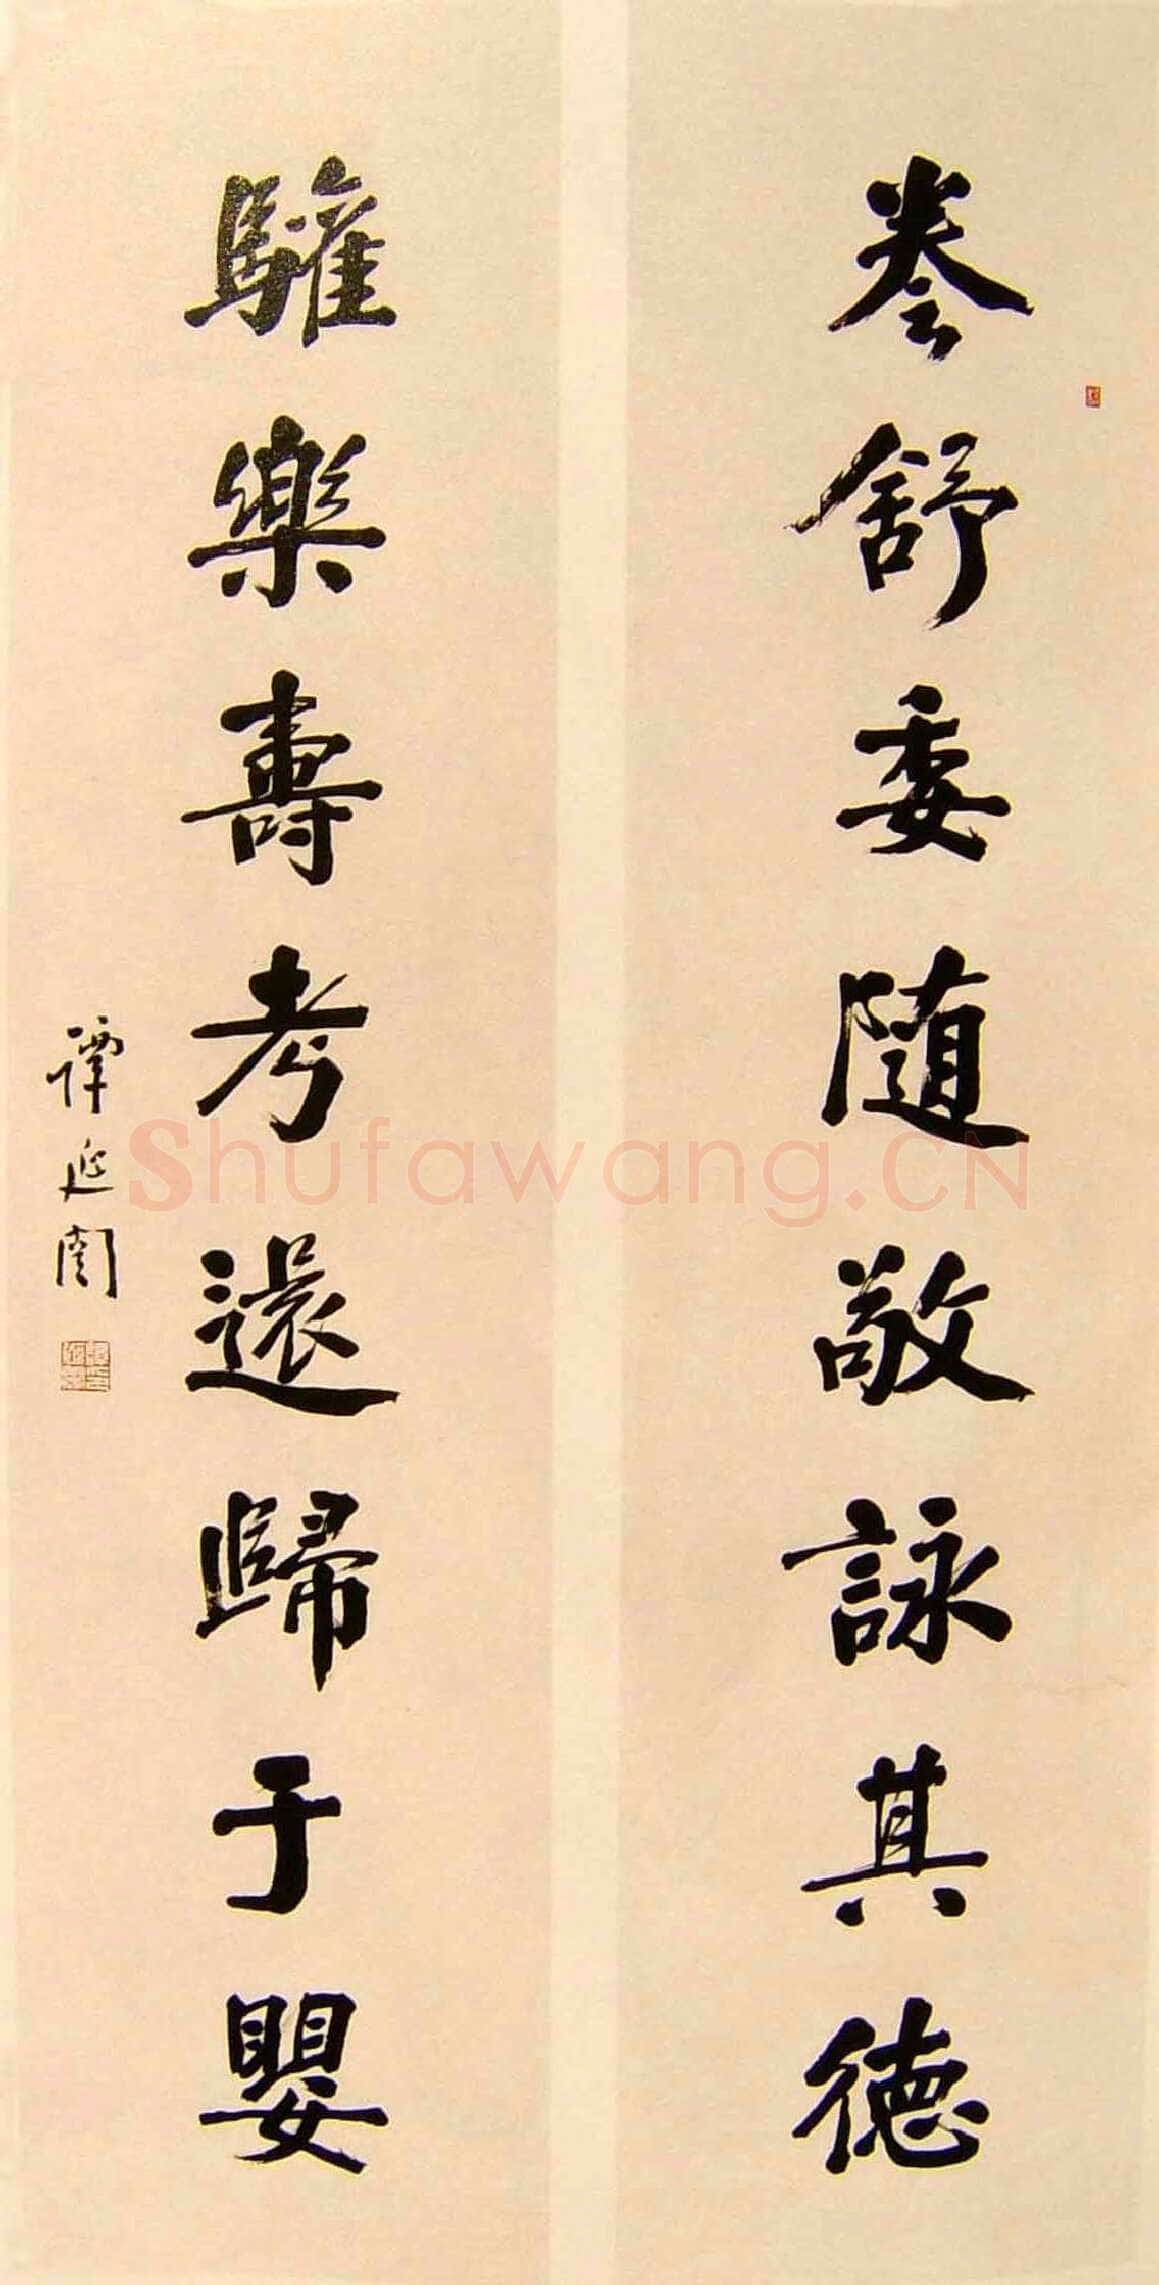 卷舒委随敬詠其德
驩樂壽考還歸于嬰
譚延闓
Shufawang.CN